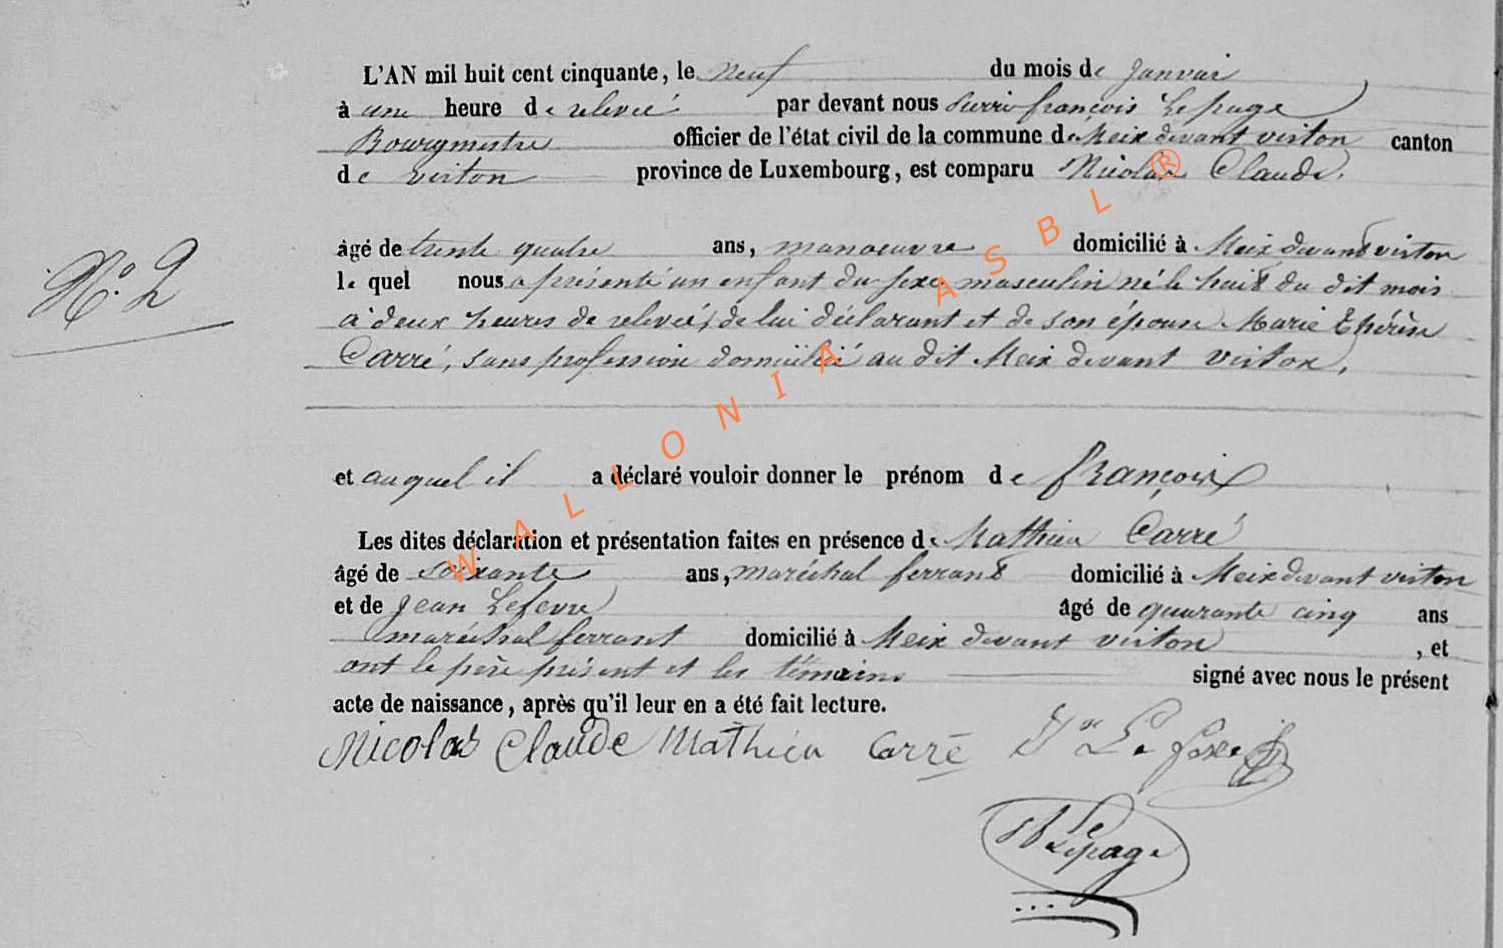 L'AN mil huit cent cinquante, le neuf du mois de janvier
à une heure de relevée par devant nous Pierre françois Lepage
Bourgmestre officier de l'état civil de la commune de Meix devant virton canton
de virton province de Luxembourg, est comparu Nicolas Claude,
âgé de trente quatre ans, manoeuvre domicilié à Meix devant virton
le quel nous a présenté un enfant du sexe masculin né le huit du dit mois
à deux heures de relevée, de lui déclarant et de son épouse Marie thérèse
Carré, sans profession domiciliée au dit Meix devant virton,
N.° 2
et auquel il a déclaré vouloir donner le prénom de françois
Les dites déclaration et présentation faites en présence de Mathieu Carré
âgé de soixante ans, maréchal ferrant domicilié à Meix devant virton
et de Jean Lefevre âgé de quarante cinq ans
maréchal ferrant domicilié à Meix devant virton, et
ont le père présent et les témoins signé avec nous le présent
acte de naissance, après qu'il leur en a été fait lecture.
Nicolas Claude Mathieu Carré
Lepage
WALLONIA ASBL ®